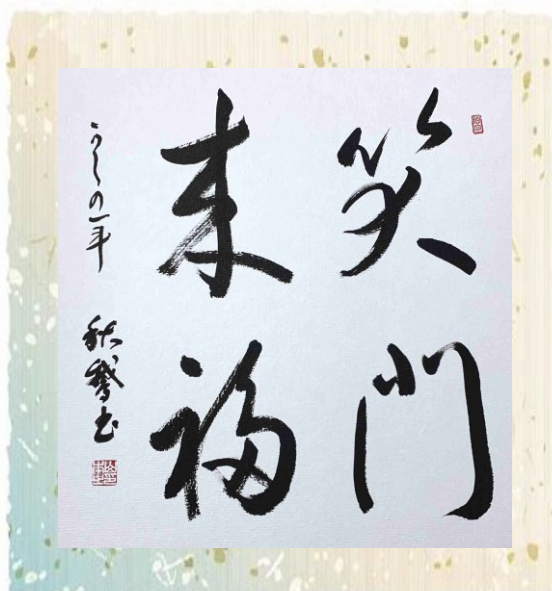 笑門
来福
うしの年 秋 書